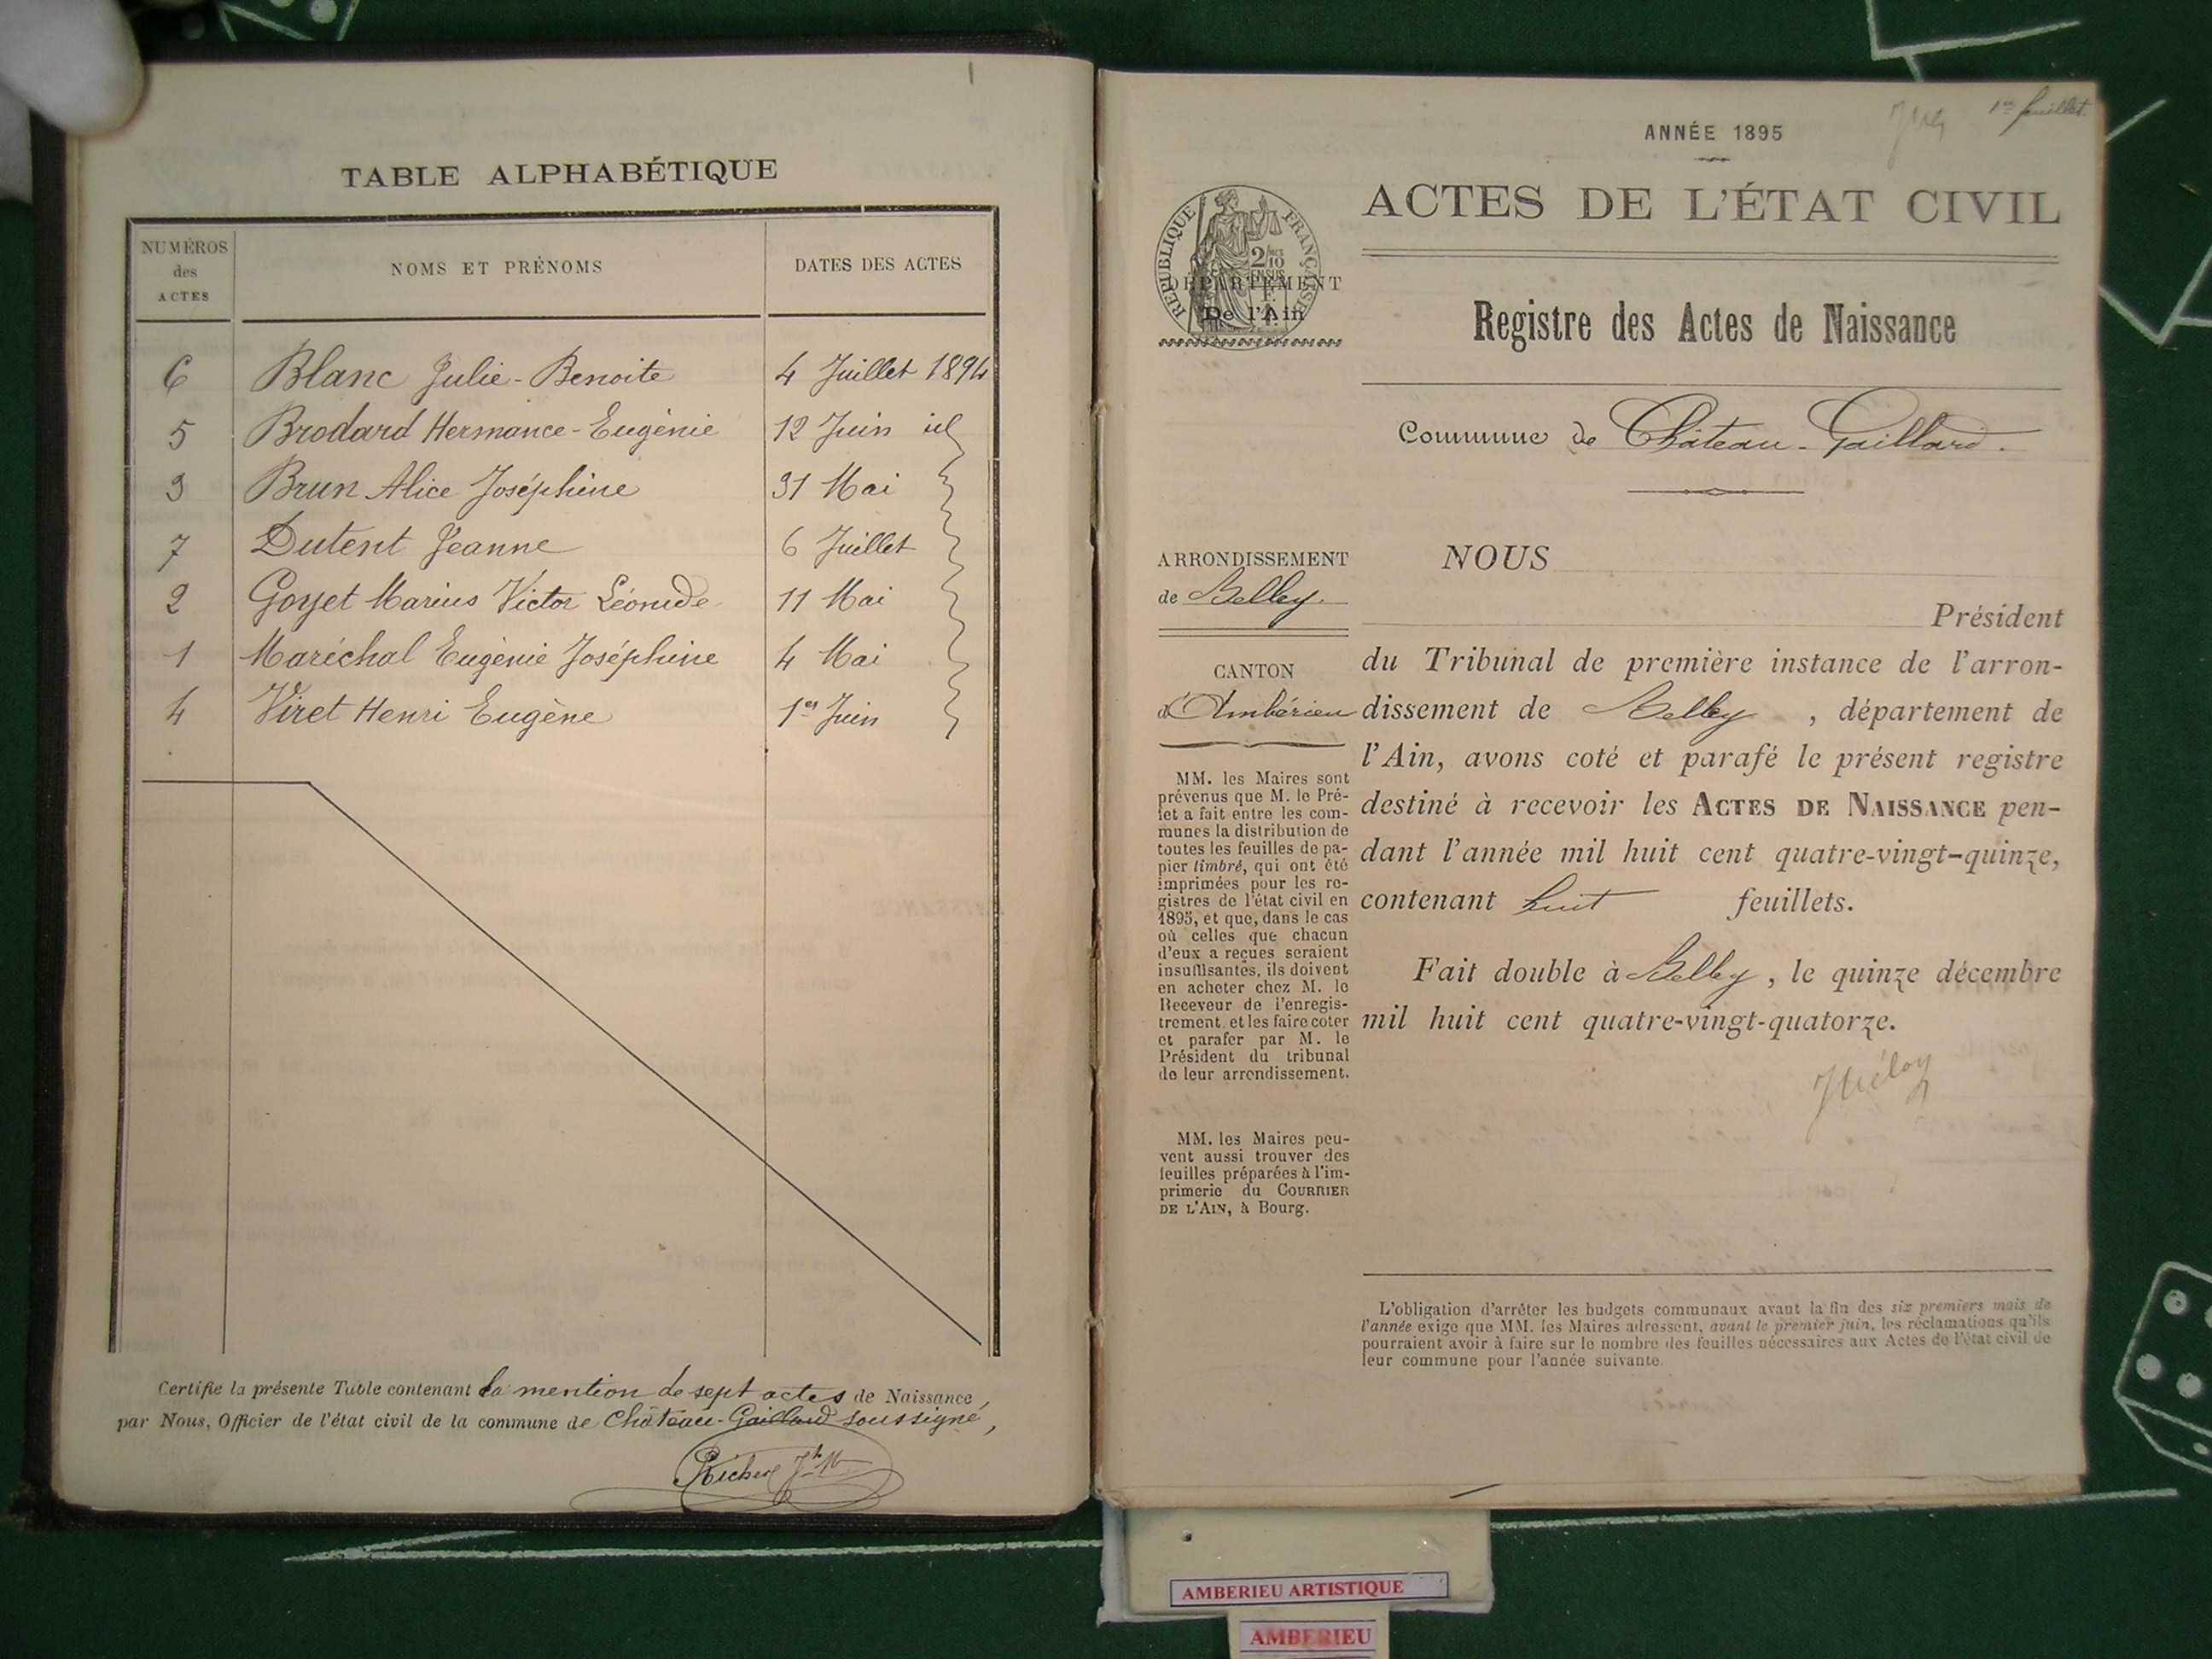 TABLE ALPHABÉTIQUE
NUMÉROS
des
ACTES
NOMS ET PRÉNOMS
DATES DES ACTES
6 Blanc Julie-Benoite 4 Juillet 1894
5 Brodard Hermance-Eugénie 12 Juin id
3 Brun Alice Joséphine 31 Mai
7 Dutent Jeanne 6 Juillet
2 Goyet Marius Victor Léonide 11 Mai
1 Maréchal Eugénie Joséphine 4 Mai
4 Viret Henri Eugène 1er Juin
Certifie la présente Table contenant la mention de sept actes de Naissance,
par Nous, Officier de l'état civil de la commune de Château-Gaillard soussigné,
1er feuillet.
ANNÉE 1895
ACTES DE L'ÉTAT CIVIL
RÉPUBLIQUE FRANÇAISE
2
10
EN SUS
DÉPARTEMENT
De l'Ain
Registre des Actes de Naissance
Commune de Château-Gaillard.
ARRONDISSEMENT
de Belley.
CANTON
d'Ambérieu
MM. les Maires sont
prévenus que M. le Pré-
fet a fait entre les com-
munes la distribution de
toutes les feuilles de pa-
pier timbré, qui ont été
imprimées pour les re-
gistres de l'état civil en
1895, et que, dans le cas
où celles que chacun
d'eux a reçues seraient
insuffisantes, ils doivent
en acheter chez M. le
Receveur de l'enregis-
trement, et les faire coter
et parafer par M. le
Président du tribunal
de leur arrondissement.
MM. les Maires peu-
vent aussi trouver des
feuilles préparées à l'im-
primerie du COURRIER
DE L'AIN, à Bourg.
NOUS
Président
du Tribunal de première instance de l'arron-
dissement de Belley, département de
l'Ain, avons coté et parafé le présent registre
destiné à recevoir les ACTES DE NAISSANCE pen-
dant l'année mil huit cent quatre-vingt-quinze,
contenant huit feuillets.
Fait double à Belley, le quinze décembre
mil huit cent quatre-vingt-quatorze.
L'obligation d'arrêter les budgets communaux avant la fin des six premiers mois de
l'année exige que MM. les Maires adressent, avant le premier juin, les réclamations qu'ils
pourraient avoir à faire sur le nombre des feuilles nécessaires aux Actes de l'état civil de
leur commune pour l'année suivante.
AMBERIEU ARTISTIQUE
AMBERIEU